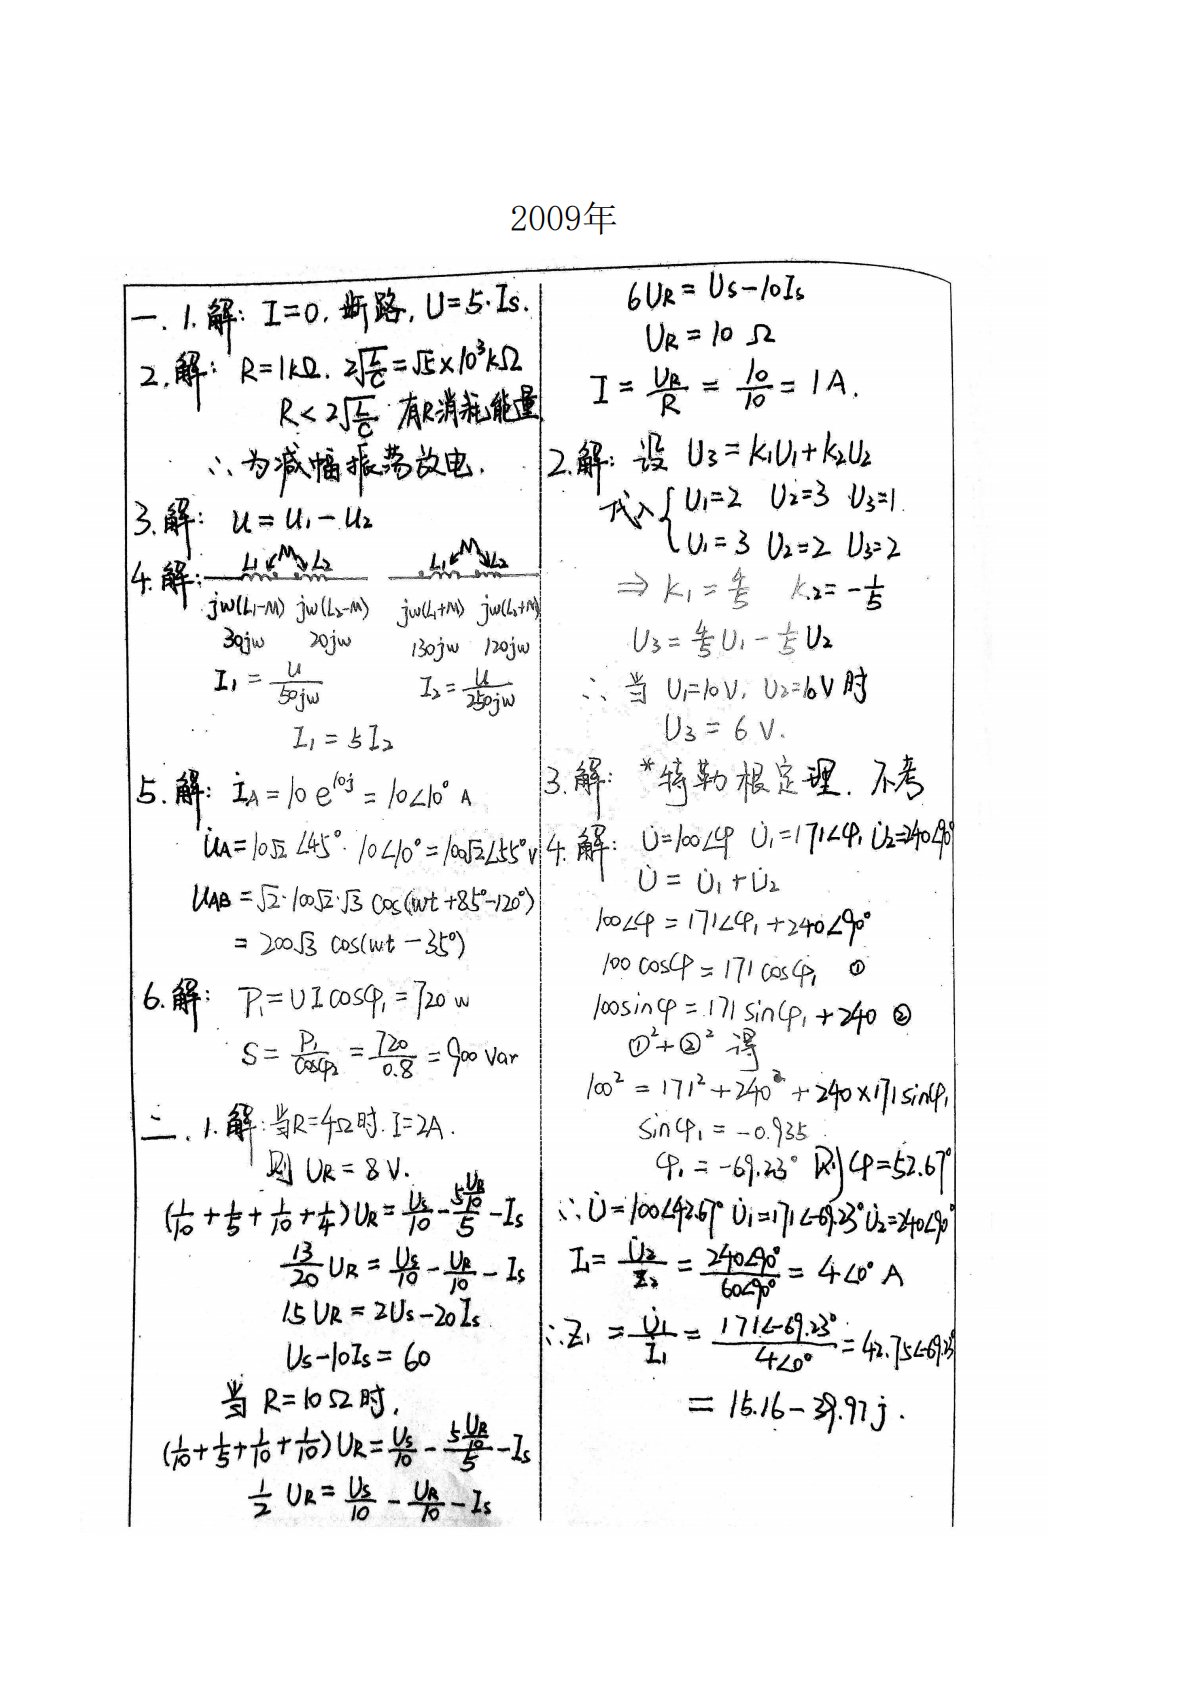 2009年
一. 1. 解: I=0, 断路, U=5·Is.
2. 解: R=1kΩ. 2√(L/C)=√5×10³kΩ
R<2√(L/C) 有R消耗能量
∴为减幅振荡放电.
3. 解: u=u₁-u₂
4. 解: L₁ M L₂ L₁ M L₂
jw(L₁-M) jw(L₂-M) jw(L₁+M) jw(L₂+M)
30jw 20jw 130jw 120jw
I₁=u/50jw I₂=u/250jw
I₁=5I₂
5. 解: İA=10e^10j=10∠10° A
U̇A=10√2∠45°·10∠10°=100√2∠55°V
UAB=√2·100√2·√3 cos(wt+85°-120°)
=200√3 cos(wt-35°)
6. 解: P₁=UIcosφ₁=720w
S=P₁/cosφ₂=720/0.8=900 Var
二. 1. 解: 当R=4Ω时. I=2A.
则 UR=8V.
(1/10+1/5+1/10+1/4)UR=Us/10-(5UR/10)/5-Is
13/20 UR=Us/10-UR/10-Is
15UR=2Us-20Is
Us-10Is=60
当 R=10Ω时,
(1/10+1/5+1/10+1/10)UR=Us/10-(5UR/10)/5-Is
1/2 UR=Us/10-UR/10-Is
6UR=Us-10Is
UR=10 Ω
I=UR/R=10/10=1A.
2. 解: 设 U₃=k₁U₁+k₂U₂
代入{U₁=2 U₂=3 U₃=1
U₁=3 U₂=2 U₃=2
⇒ k₁=4/5 k₂=-1/5
U₃=4/5U₁-1/5U₂
∴当 U₁=10V, U₂=10V时
U₃=6V.
3. 解: *特勒根定理. 不考
4. 解: U̇=100∠φ U̇₁=171∠φ₁ U̇₂=240∠90°
U̇=U̇₁+U̇₂
100∠φ=171∠φ₁+240∠90°
100cosφ=171cosφ₁ ①
100sinφ=171sinφ₁+240 ②
①²+②² 得
100²=171²+240²+240×171sinφ₁
sinφ₁=-0.935
φ₁=-69.23° 则φ=52.67°
∴U̇=100∠42.67° U̇₁=171∠-69.23° U̇₂=240∠90°
I₁=U̇₂/Z₂=240∠90°/60∠90°=4∠0° A
∴Z₁=U̇₁/I₁=171∠-69.23°/4∠0°=42.75∠-69.23°
=15.16-39.97j.